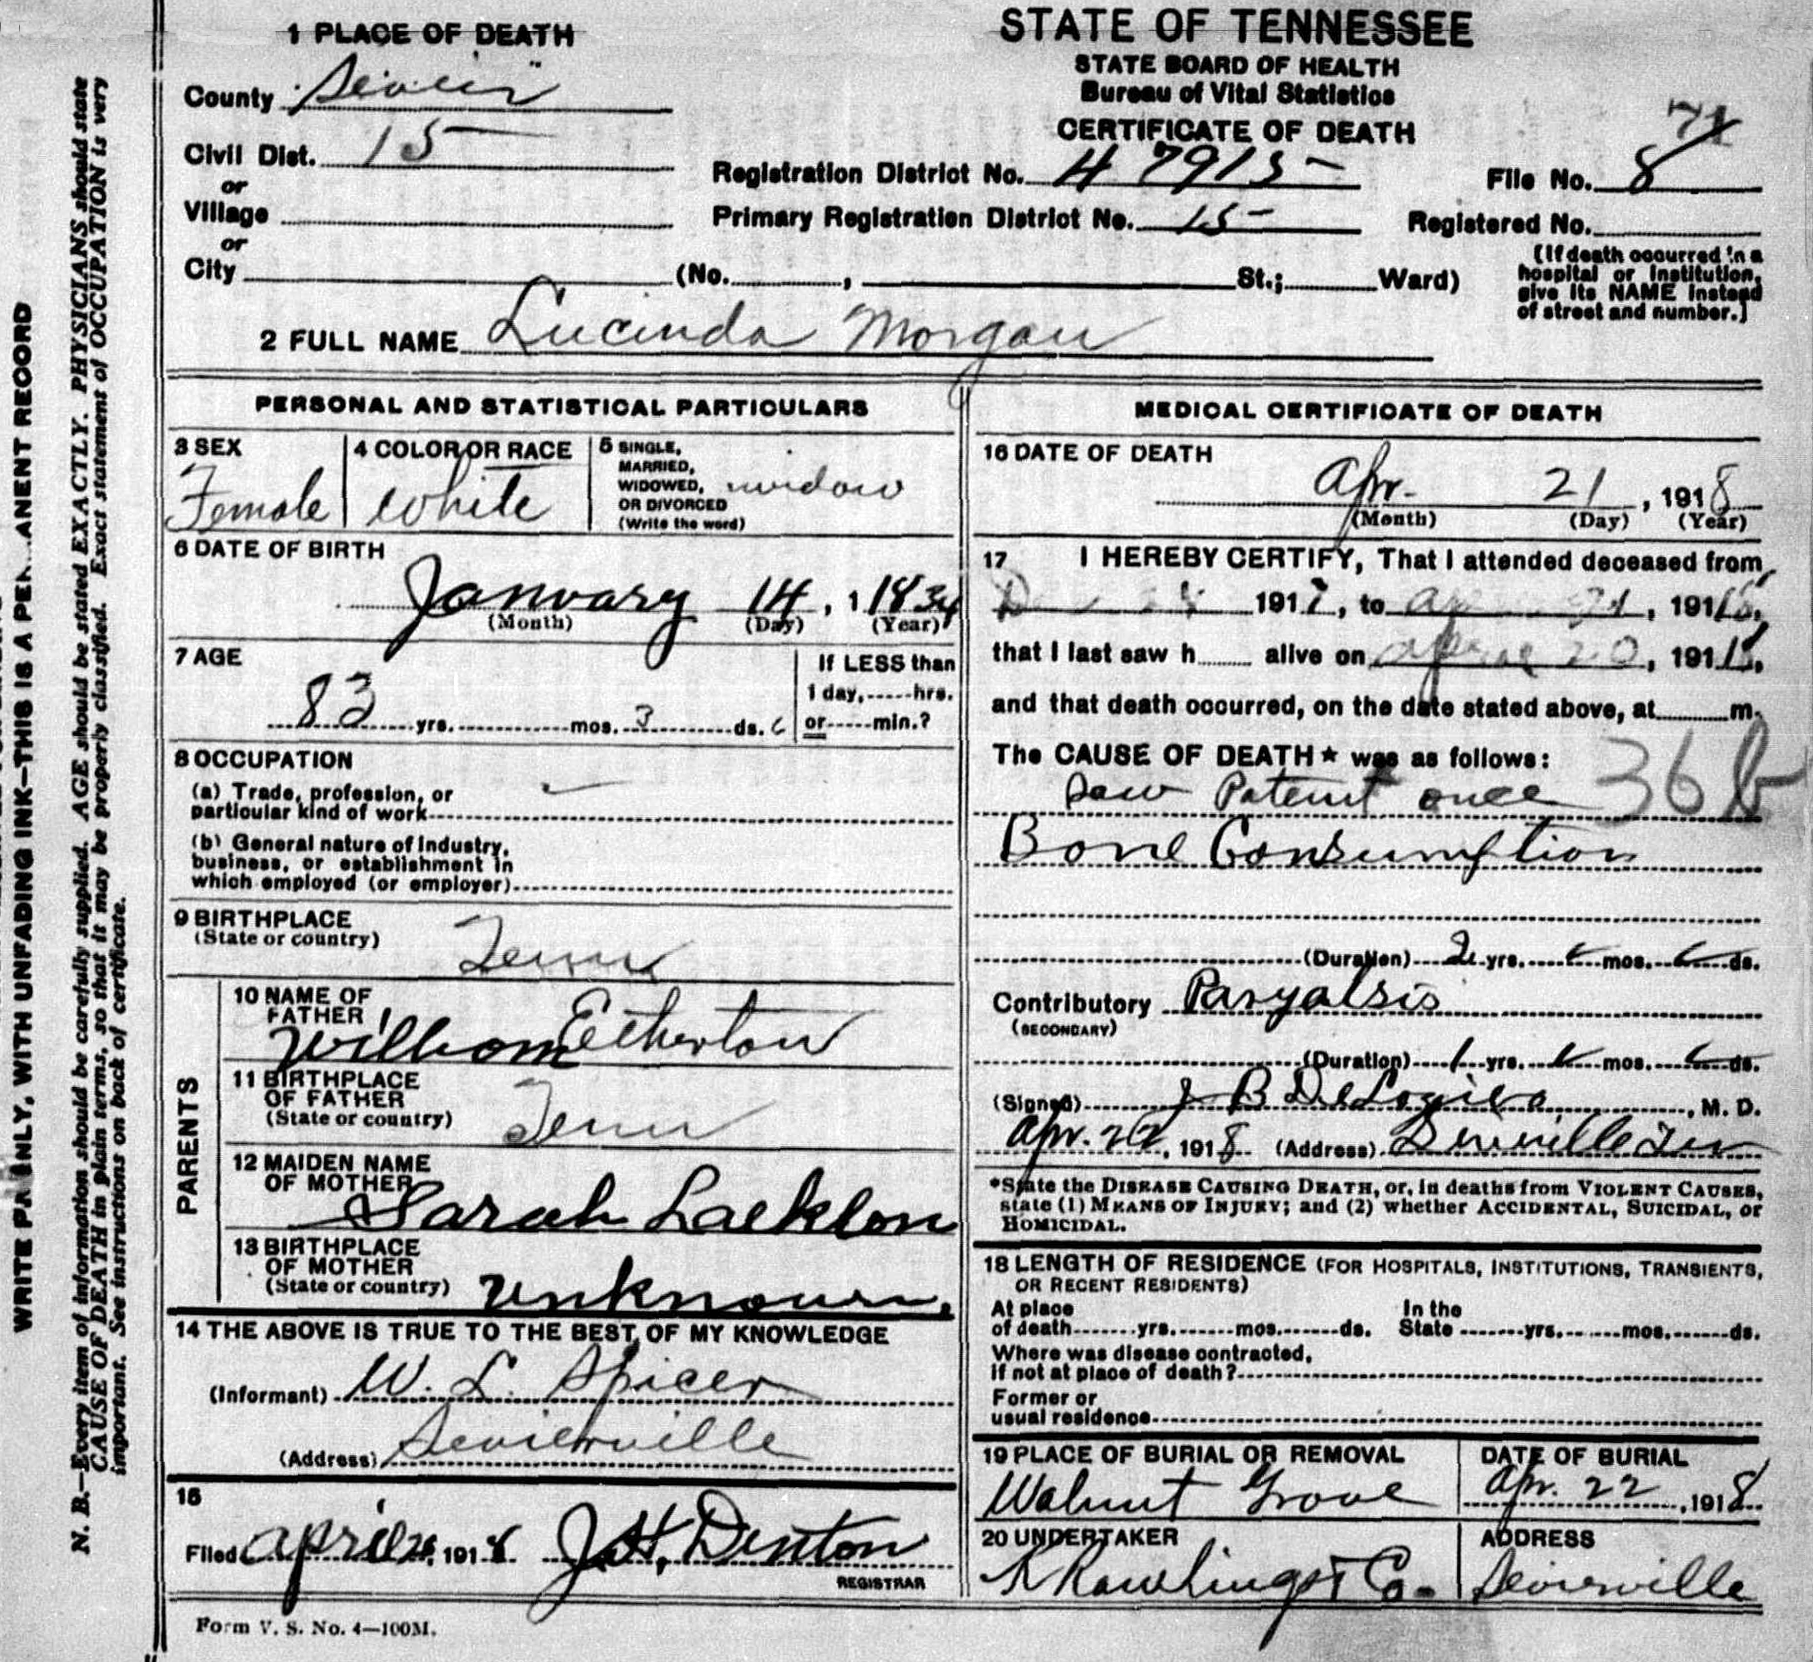 1 PLACE OF DEATH
County Sevier
Civil Dist. 15
or
Village
or
City (No. , St.; Ward)
STATE OF TENNESSEE
STATE BOARD OF HEALTH
Bureau of Vital Statistics
CERTIFICATE OF DEATH
71
Registration District No. H 7915
File No. 8
Primary Registration District No. 15
Registered No.
[If death occurred in a
hospital or institution,
give its NAME instead
of street and number.]
2 FULL NAME Lucinda Morgan
PERSONAL AND STATISTICAL PARTICULARS
3 SEX
Female
4 COLOR OR RACE
White
5 SINGLE,
MARRIED,
WIDOWED,
OR DIVORCED
(Write the word)
widow
6 DATE OF BIRTH
January 14, 1 1834
(Month) (Day) (Year)
7 AGE
83 yrs. mos. 3 ds.
If LESS than
1 day, hrs.
or min.?
8 OCCUPATION
(a) Trade, profession, or
particular kind of work
(b) General nature of industry,
business, or establishment in
which employed (or employer)
9 BIRTHPLACE
(State or country)
Tenn
PARENTS
10 NAME OF
FATHER
William Etherton
11 BIRTHPLACE
OF FATHER
(State or country)
Tenn
12 MAIDEN NAME
OF MOTHER
Sarah
13 BIRTHPLACE
OF MOTHER
(State or country) unknown.
14 THE ABOVE IS TRUE TO THE BEST OF MY KNOWLEDGE
(Informant) W. L. Spicer
(Address) Sevierville
15
Filed April , 1918 J.H. Denton
REGISTRAR
Form V. S. No. 4—100M.
MEDICAL CERTIFICATE OF DEATH
16 DATE OF DEATH
Apr. 21, 1918
(Month) (Day) (Year)
17 I HEREBY CERTIFY, That I attended deceased from
1917, to 21, 191
that I last saw h alive on 20, 191
and that death occurred, on the date stated above, at m.
The CAUSE OF DEATH* was as follows:
36 b
saw Patent once
Bone Consumption
(Duration) 2 yrs. mos. ds.
Contributory Paryalsis
(SECONDARY)
(Duration) 1 yrs. mos. ds.
(Signed) J B , M. D.
Apr. 22, 1918 (Address)
*State the DISEASE CAUSING DEATH, or, in deaths from VIOLENT CAUSES,
state (1) MEANS OF INJURY; and (2) whether ACCIDENTAL, SUICIDAL, or
HOMICIDAL.
18 LENGTH OF RESIDENCE (FOR HOSPITALS, INSTITUTIONS, TRANSIENTS,
OR RECENT RESIDENTS)
At place
of death yrs. mos. ds.
In the
State yrs. mos. ds.
Where was disease contracted,
if not at place of death?
Former or
usual residence
19 PLACE OF BURIAL OR REMOVAL
Walnut Grove
DATE OF BURIAL
Apr. 22, 1918
20 UNDERTAKER
Rawlings & Co.
ADDRESS
Sevierville
N. B.—Every item of information should be carefully supplied. AGE should be stated EXACTLY. PHYSICIANS should state
CAUSE OF DEATH in plain terms, so that it may be properly classified. Exact statement of OCCUPATION is very
important. See instructions on back of certificate.
WRITE PLAINLY, WITH UNFADING INK—THIS IS A PER ANENT RECORD